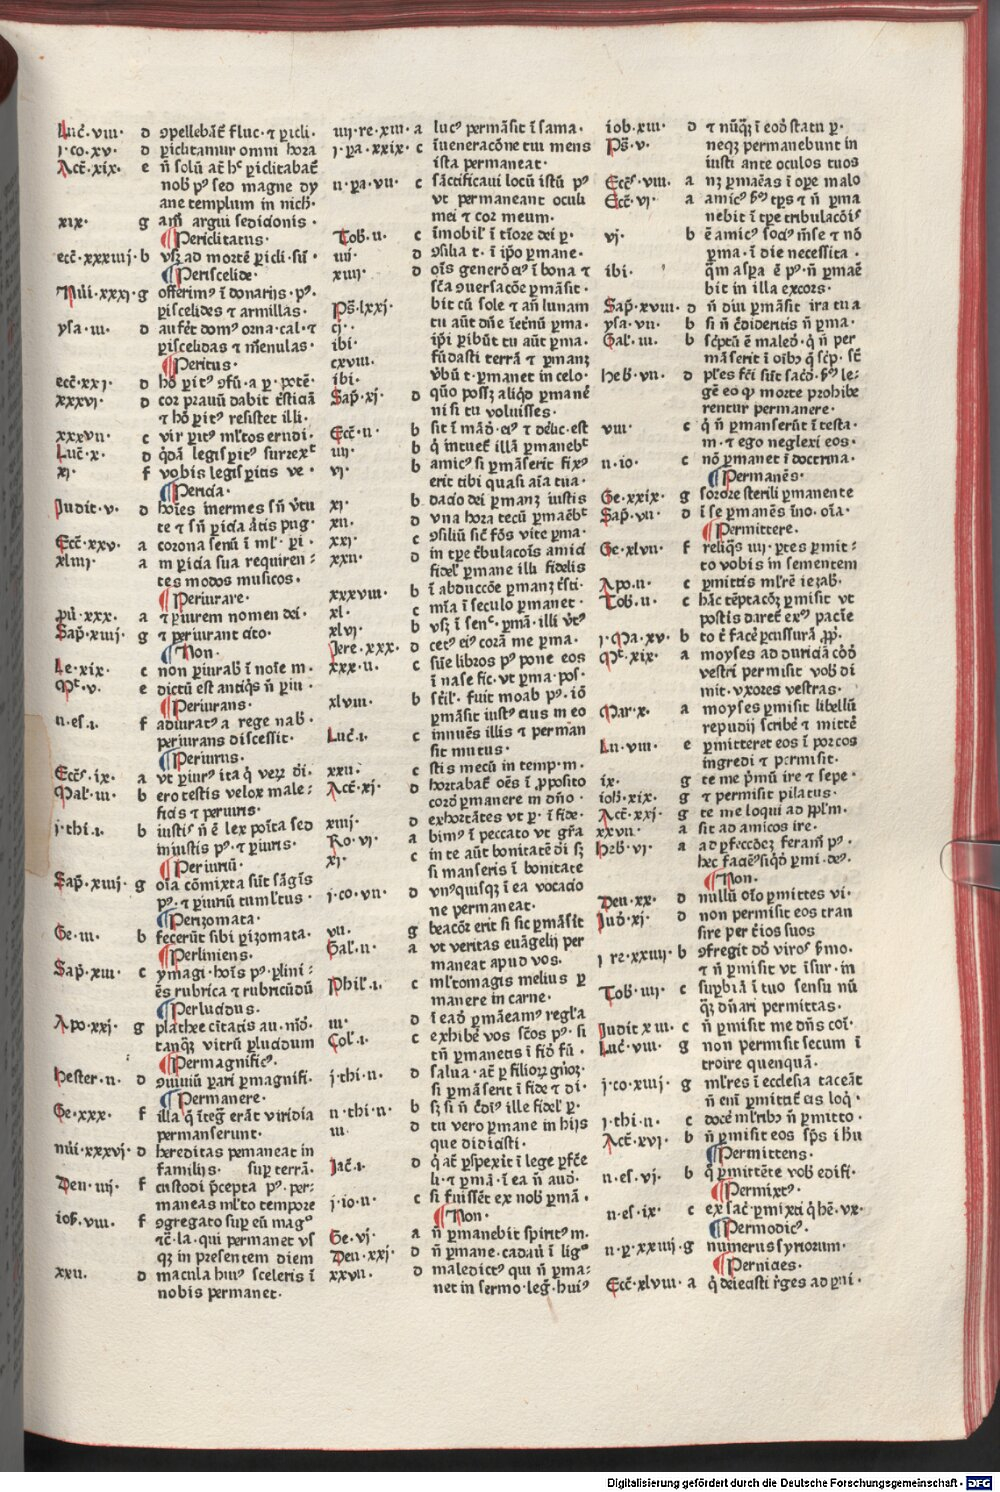 Luc̄·viii· d ꝯpellebāt̄ fluc·⁊ ꝑicli·
j·co·xv· d ꝑiclitamur omni hora
Act̄·xix· e n̄ solū at̄ hᶜ ꝑiclitabat̄
nob̄ pꝰ sed magne dy
ane templum in nich̄·
xix· g am̄ argui sedicionis·
¶Periclitatus·
ecc̄·xxxiiij·b vsꝫ ad mortē ꝑicli·su̅·
¶Periscelide·
Nūi·xxxj·g offerimꝰ ī donarijs·pꝰ·
ꝑiscelides ⁊ armillas·
ysa·iii· d aufet̄ domꝰ orna·cal·⁊
ꝑiscelidas ⁊ m̄enulas·
¶Peritus·
ecc̄·xxj· d hō ꝑitꝰ ꝯfū·a ꝑ·potē·
xxxvj· d cor prauū dabit t̄sticiā
⁊ hō ꝑitꝰ resistet illi·
xxxvii· c vir ꝑitꝰ ml̄tos erudi·
Luc̄·x· d q̇dā legisꝑitꝰ surrexᵗ
xj· f vobis legisꝑitis ve·
¶Pericia·
Judit·v· d hoīes inermes sn̄ v̄tu
te ⁊ sn̄ ꝑicia ātis pug·
Ecc̄·xxv· a corona senū ī ml̄·ꝑi·
xliiij· a in ꝑicia sua requiren⸗
tes modos musicos·
¶Periurare·
pū·xxx· a ⁊ ꝑiurem nomen dei·
Sap̄·xiiij· g ⁊ periurant cito·
¶Non·
Le·xix· c non ꝑiurab̄ ī noīe m·
Mᵗ·v· e dictū est antiq̇s n̄ ꝑiu·
¶Periurans·
ii·es·i· f adiuratꝰ a rege nab·
periurans discessit·
¶Periurus·
Ecc̄ˢ·ix· a vt ꝑiurꝰ ita q̇ veꝝ di·
Mal̄·iii· b ero testis velox male⸗
ficis ⁊ periuris·
j·thi·i· b iustis n̄ ē lex poīta sed
iniustis pꝰ·⁊ ꝑiuris·
¶Periuriū·
Sap̄·xiiij· g oīa cōmixta sūt sāgīs
pꝰ·⁊ ꝑiuriū tumltus·
¶Perizomata·
Ge·iii· b fecerūt sibi ꝑizomata·
¶Perliniens·
Sap̄·xiii· c ymagi·hoīs pꝰ·ꝑlini⸗
ēs rubrica ⁊ rubricūdū
¶Perlucidus·
Apo·xxj· g plathee cītatis au·mō·
tanqꝫ vitrū ꝑlucidum
¶Permagnificꝰ·
Hester·ii· d ꝯuiuiū ꝑari ꝑmagnifi·
¶Permanere·
Ge·xxx· f illa q̇ īteg̅ erāt viridia
permanserunt·
nūi·xxxvj· d hereditas ꝑmaneat in
familijs· suꝑ terrā·
Deu·iiij· f custodi p̄cepta pꝰ·per⸗
maneas ml̄to tempore
iob̄·viii· f ꝯgregato suꝑ eū magᵒ
⁊c̄·la·qui permanet vs
qꝫ in presentem diem
xxii· d macula huiꝰ sceleris ī
nobis permanet·
iiij·re·xiii· a lucꝰ permāsit ī sama·
j·pa·xxix· c īueneracōne tui mens
ista permaneat·
ii·pa·vii· c sāctificaui locū istū pꝰ
vt permaneant oculi
mei ⁊ cor meum·
Tob̄·ii· c īmobil̄ ī tīore dei ꝑ·
iiij· d ꝯsilia t·ī ip̄o ꝑmane·
xiiij· d oīs generō eiꝰ ī bona ⁊
sc̄a ꝯuersacōe ꝑmāsit·
Ps̄·lxxj· bit cū sole ⁊ an̄ lunam
cj· tu aūt dn̄e īet̄nū ꝑma·
ibi· ip̄i ꝑibūt tu aūt ꝑma·
cxviii· fūdasti terrā ⁊ ꝑmanꝫ
ibi· v̄bū t·ꝑmanet in celo·
Sap̄·xj· d quō possꝫ aliq̇d ꝑmanē
ni si tu voluisses·
Ecc̄·ii· b sit ī māō·eiꝰ ⁊ deluc·est
iiij· b q̇ intuet̄ illā ꝑmanebᵗ
vj· b amicꝰ si ꝑmāserit fixꝰ
erit tibi quasi aīa tua·
xj· b dacio dei ꝑmanꝫ iustis
xii· d vna hora tecū ꝑmaēbᵗ
xxj· c ꝯsiliū sic̄ fōs vite ꝑma·
xxii· d in tꝑe t̄bulacoīs amici
fidel̄ ꝑmane illi fidelis
xxxviii· b ī abduccōe ꝑmanꝫ t̄sti·
xl· c mīa ī seculo ꝑmanet·
xlvj· b vsꝫ ī senᶜ·ꝑmā·illi v̄tꝰ
Jere·xxx· d cetꝰ eiꝰ corā me ꝑma·
xxx·ii· c sūe libros pꝰ pone eos
ī nase fic·vt ꝑma·pos·
xlviii· b sc̄il·fuit moab pꝰ·iō
ꝑmāsit iustꝰ eius in eo
Luc̄·i· c innuēs illis ⁊ perman
sit mutus·
xxii· c stis mecū in temp·m·
Act̄·xj· d hortabat̄ oēs ī ꝓposito
corō ꝑmanere in dn̄o·
xiiij· d exhortātes vt ꝑ·ī fide·
Ro·vj· a bimꝰ ī peccato vt gr̄a
xj· c in te aūt bonitatē di sꝫ
si manseris ī bonitate
j·co·vii· d vnꝰquisqꝫ ī ea vocacio
ne permaneat·
vii· g beacōr erit si sic ꝑmāsīt
Gal̄·ii· a vt veritas euāgelij per
maneat apud vos·
Phil̄·i· c ml̄tomagis melius ꝑ
manere in carne·
iii· d ī eadō ꝑmāeamꝰ regl̄a
Col̄·i· c exhibē vos sc̄os pꝰ·si
tn̄ ꝑmanetis ī fiō fū·
j·thi·ii· d salua·at̄ ꝑ filioꝝ gn̄oꝝ·
si ꝑmāserit ī fide ⁊ di·
ii·thi·ii· b sꝫ si n̄ c̄diꝰ ille fidel̄ ꝑ·
iii· d tu vero ꝑmane in hijs
que didicisti·
Jac̄·i· d q̇ at̄ ꝑspexīt ī lege ꝑfc̄e
li·⁊ ꝑmā·ī ea n̄ audō·
j·io·ii· c si fuissēt ex nob̄ ꝑmā·
¶Non·
Ge·vj· a n̄ ꝑmanebit spiritꝰ m·
Deu·xxj· d n̄ ꝑmane·cadau̅ ī ligᵒ
xxvii· d maledictꝰ qui n̄ ꝑma⸗
net in sermo·leḡ·huiꝰ
iob·xiii· d ⁊ nūq̇ꝫ ī eodō statu ꝑ·
Ps̄·v· neqꝫ permanebunt in
iusti ante oculos tuos
Ecc̄ˢ·viii· a nꝫ ꝑmaēas ī oꝑe malo
Ecc̄·vj· a amicꝰ ẜm tꝑs ⁊ n̄ ꝑma
nebit ī tꝑe tribulacōīs
vj· b ē amicꝰ sociꝰ mn̄se ⁊ nō
ꝑma·ī die necessita·
ibi· qm̄ aspa ē pꝰ·n̄ ꝑmaē
bit in illa excors·
Sap̄·xviii· d n̄ diu ꝑmāsit ira tua
ysa·vii· b si n̄ c̄dideritis n̄ ꝑma·
Gal̄·iii· b sc̄ptū ē maledō·q̇ n̄ per
māserit ī oībꝫ q̇ sc̄p·st̄
heb̄·vii· d pl̄es fc̄i sūt sac̄d·ẜm le⸗
gē eo ꝙ morte prohibe
rentur permanere·
viii· c q̇ n̄ ꝑmanserūt ī testa·
m·⁊ ego neglexi eos·
ii·io· c nō ꝑmanet ī doctrina·
¶Permanēs·
Ge·xxix· g sorore sterili ꝑmanente
Sap̄·vii· d ī se ꝑmanēs īno·oīa·
¶Permittere·
Ge·xlvii· f reliq̇s iiij·ꝑtes ꝑmit⸗
to vobis in sementem
Apo·ii· c ꝑmittis ml̄rē iezab·
Tob̄·ii· c hāc tēptacōꝫ ꝑmisit vt
postis daret̄ exꝰ pacīe
j·Ma·xv· b to t̄ facē ꝑcussurā ꝓp̄·
Mᵗ·xix· a moyses ad duriciā cōō
vestri permisit vob̄ di
mit·vxores vestras·
Mar·x· a moyses ꝑmisit libellū
repudij scribē ⁊ mittē
Lu·viii· e ꝑmitteret eos ī porcos
ingredi ⁊ ꝑermisit·
ix· g te me pⁱmū ire ⁊ sepe·
ioh̄·xix· g ⁊ permisit pilatus·
Act̄·xxj· g te me loqui ad pp̄lm·
xxvii· a sit ad amicos ire·
Heb̄·vj· a ad ꝑfeccōeꝫ feram̄ pꝰ·
hec faciēꝰ siq̇dō ꝑmi·deꝰ·
¶Non·
Deu·xx· d nullū oīo ꝑmittes vi·
Judō·xj· d non permisit eos tran
sire per t̄ios suos
j re·xxiiij·b ꝯfregit dō viros ẜmo·
⁊ n̄ ꝑmisit vt īsur·in
Tob̄·iiij· c suꝑbiā ī tuo sensu nū
q̇ꝫ dn̄ari permittas·
Judit xiii· c n̄ ꝑmisit me dn̄s coī·
Luc̄·viii· g non permisit secum ī
troire quenquā·
j·co·xiiij· g ml̄res ī ecclesia taceāt
n̄ eni̅ ꝑmittat̄ eis loq̇·
j·thi·ii· c docē ml̄ribꝫ n̄ ꝑmitto·
Act̄·xvj· b n̄ ꝑmisit eos sp̄s ihu
¶Permittens·
ii·es·vj· b q̇ ꝑmittēte vob̄ edifi·
¶Permixtꝰ·
ii·es·ix· c ex sac̄·ꝑmixti q̇ hē·vx·
¶Permodicꝰ·
ii·p·xxiiij·g numerus syriorum·
¶Pernicies·
Ecc̄·xlviii· a q̇ deiecisti r̄ges ad ꝑni·
Digitalisierung gefördert durch die Deutsche Forschungsgemeinschaft - DFG